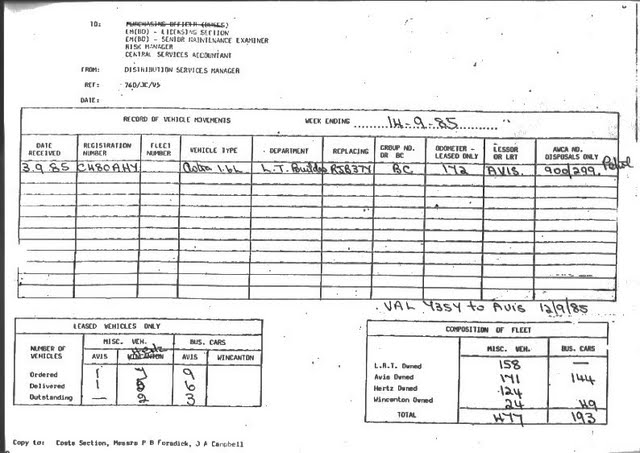 TO: PURCHASING OFFICER (BUSES)
EM(BO) - LICENSING SECTION
EM(BO) - SENIOR MAINTENANCE EXAMINER
RISK MANAGER
CENTRAL SERVICES ACCOUNTANT
FROM: DISTRIBUTION SERVICES MANAGER
REF: 76D/JC/VS
DATE:
RECORD OF VEHICLE MOVEMENTS WEEK ENDING 14-9-85
DATE RECEIVED REGISTRATION NUMBER FLEET NUMBER VEHICLE TYPE DEPARTMENT REPLACING GROUP NO. OR BC ODOMETER - LEASED ONLY LESSOR OR LRT AWCA NO. DISPOSALS ONLY
3.9.85 C480AHY 1.6L L.T. Builders RJB37Y BC 172 AVIS. 900/299. Petrol
VAL 435Y to Avis 12/9/85
LEASED VEHICLES ONLY
NUMBER OF VEHICLES MISC. VEH. BUS. CARS
AVIS Hertz WINCANTON AVIS WINCANTON
Ordered 1 7 9
Delivered 1 5 6
Outstanding — 2 3
COMPOSITION OF FLEET
MISC. VEH. BUS. CARS
L.R.T. Owned 158 —
Avis Owned 171 144
Hertz Owned 124
Wincanton Owned 24 49
TOTAL 477 193
Copy to: Costs Section, Messrs P B Foradick, J A Campbell